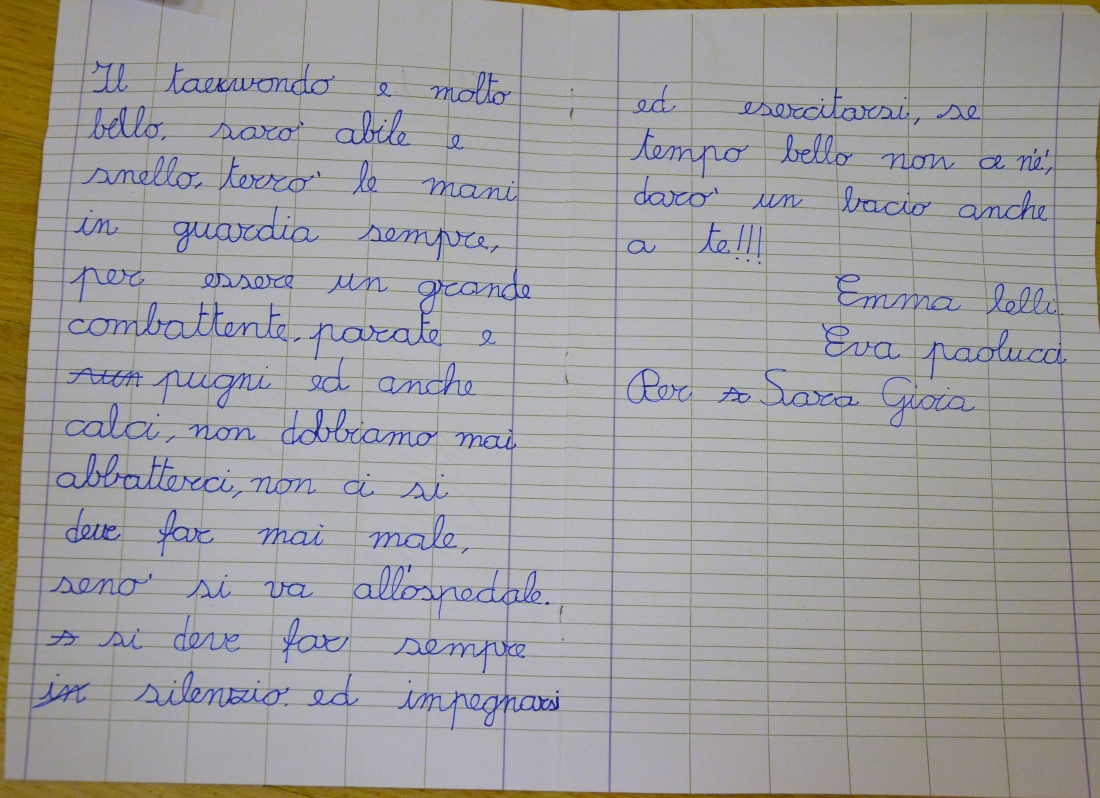 Il taekwondo e molto
bello, sarò abile e
snello, terrò le mani
in guardia sempre,
per essere un grande
combattente, parate e
pugni ed anche
calci, non dobbiamo mai
abbatterci, non ci si
deve far mai male,
senò si va all'ospedale.
si deve far sempre
silenzio. ed impegnarsi
ed esercitarsi, se
tempo bello non ce n'è,
darò un bacio anche
a te!!!
Emma lelli.
Eva paolucci
Per Sara Gioia